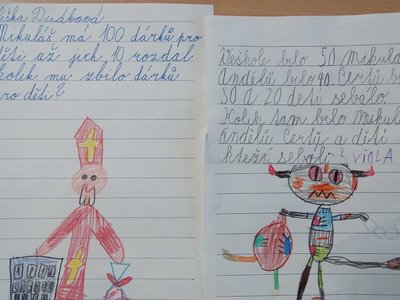 liška Dvářová
Mikuláš má 100 dárků pro
děti už jich 10 rozdal
kolik mu zbilo dárků
ro děti?
Veškole bilo 50 Mikulá
Andělů bilo 40. Čertů b
50 A 20 dětí sebálo
Kolik tam bilo Mikul
Andělů Čertů a dětí
kteří sebáli? VIOLA